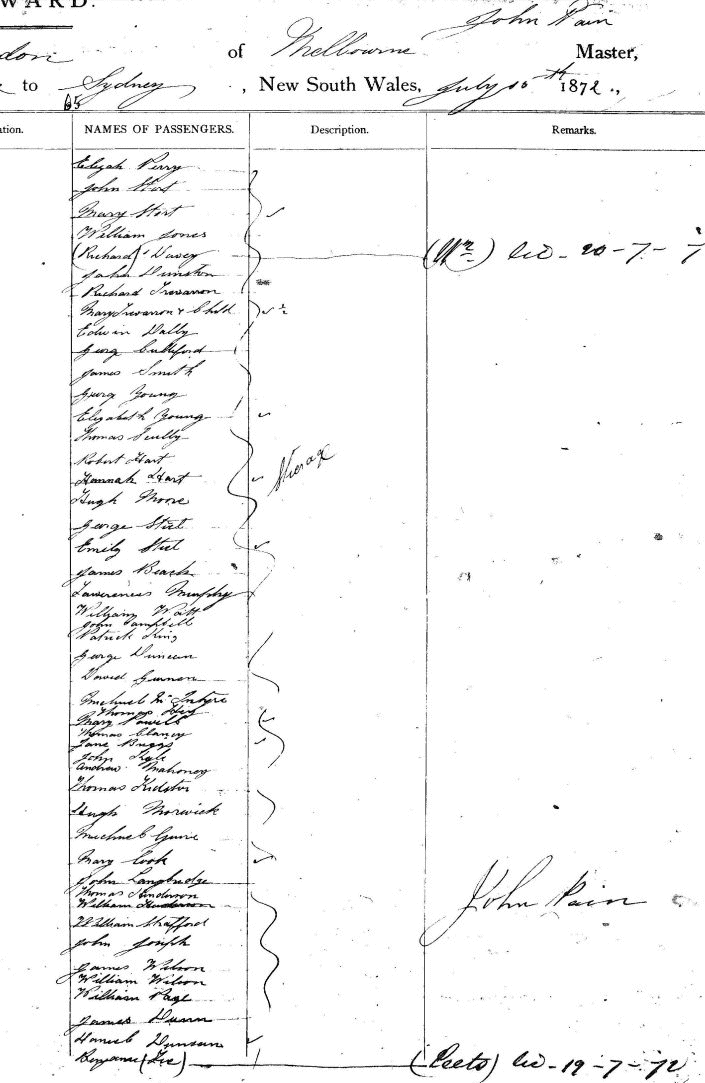 WARD.
John Pain
don of Melbourne Master,
to Sydney, New South Wales, July 10th 1872.,
65
ation. NAMES OF PASSENGERS. Description. Remarks.
Elizah Perry
John Stort
Mary Stort
William Jones
(Richard) Davey (Wm) lid - 20 - 7 - 7
John Dunston
Richard Trevarron
Mary Trevarron & Child
Edwin Dally
Georg Culliford
James Smith
Georg Young
Elizabeth Young
Thomas Scully
Robert Hart
Steerage
Hannah Hart
Hugh Moore
George Steel
Emily Steel
James Beach
Lawrence Murphy
William Watt
John Campbell
Patrick King
George Duncan
David
Michael McIntyre
Thomas Hoy
Mary Powell
Thomas Clancy
Jane Briggs
John Kyle
Andrew Mahoney
Thomas Kidston
Hugh Norwick
Michael
Mary Cook
John Langbridge
Thomas Henderson
John Pain
William Henderson
William Strafford
John Joseph
James Wilson
William Wilson
William Page
James Dunn
Daniel Duncan
(Lee) (Peeto) lid - 19 - 7 - 72